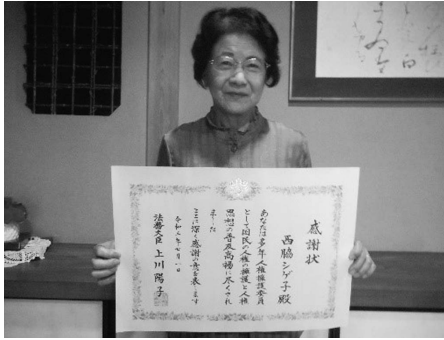 感謝状
西脇シゲ子殿
あなたは多年人権擁護委員
として国民の人権の擁護と人権
思想の普及高揚に尽くされ
ました
ここに深く感謝の意を表します
令和三年七月一日
法務大臣 上川陽子